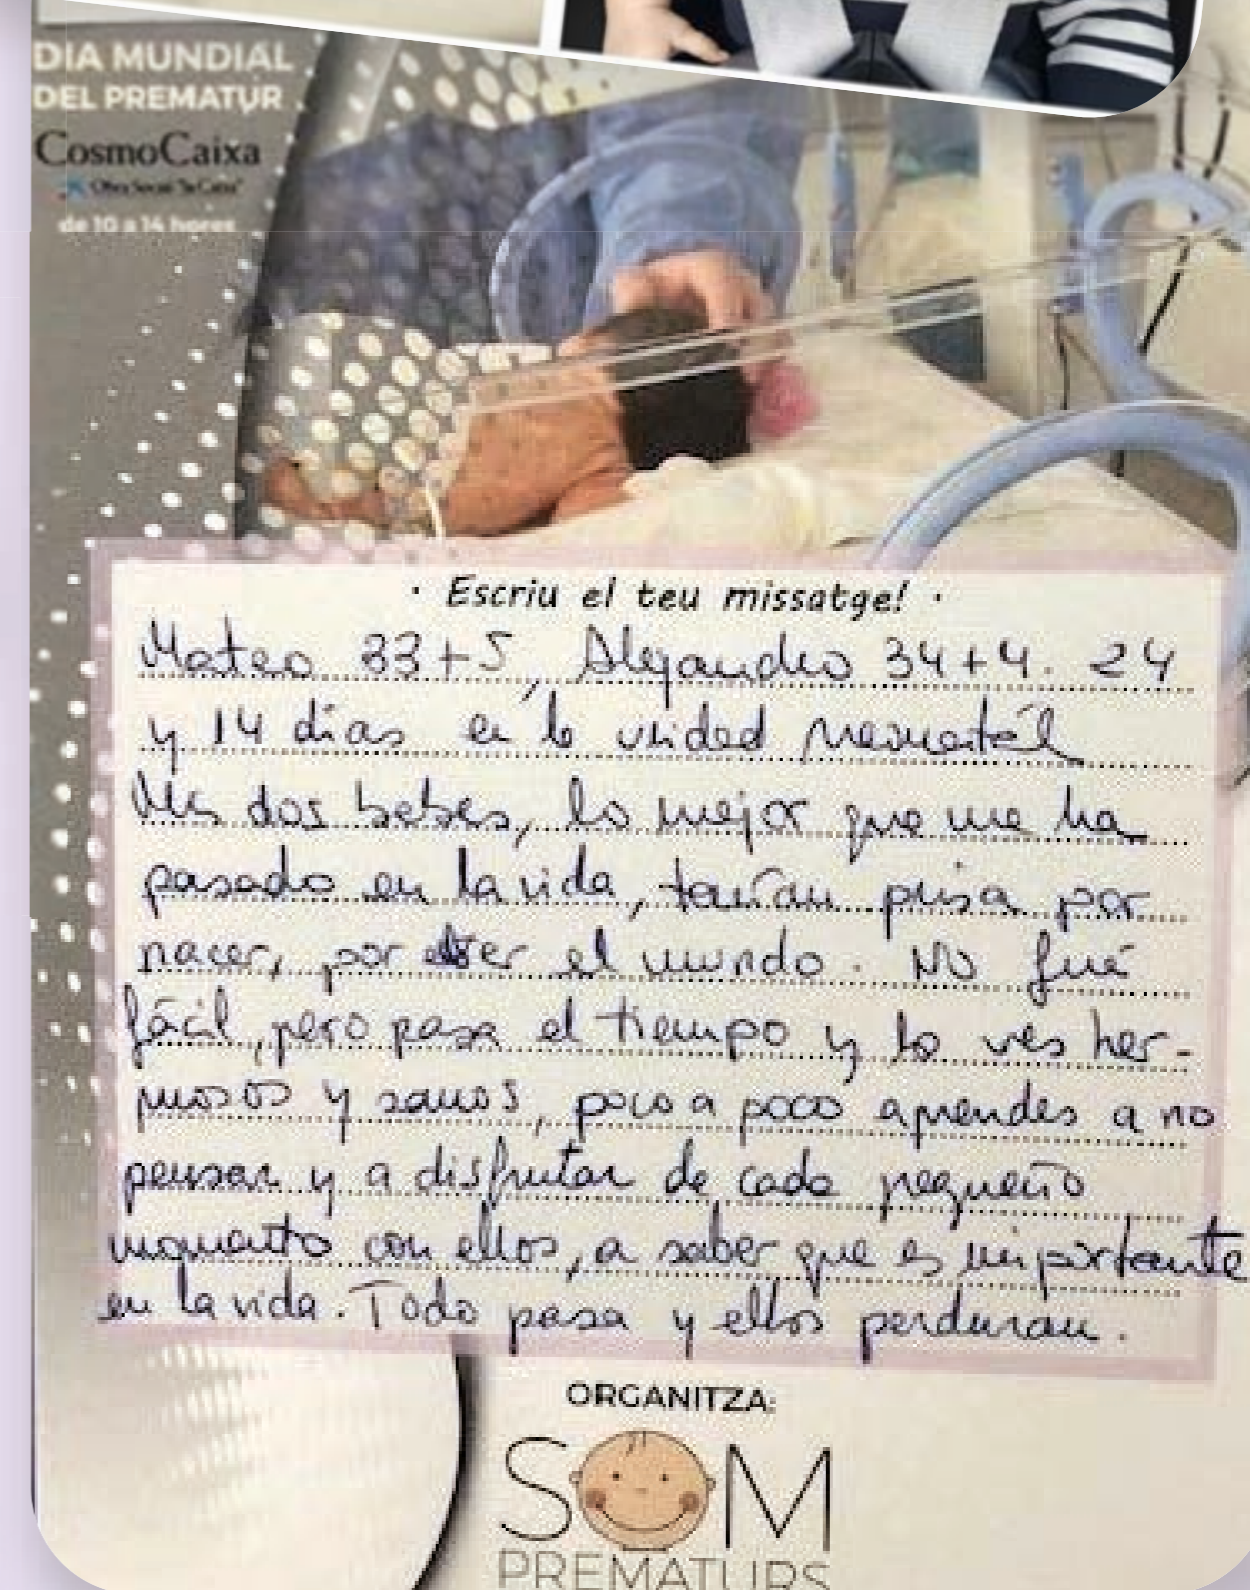 DIA MUNDIAL
DEL PREMATUR
CosmoCaixa
Obra Social "la Caixa"
de 10 a 14 hores
· Escriu el teu missatge! ·
Mateo 33+5, Alejandro 34+4. 24
y 14 días en la unidad neonatál
Mis dos bebes, lo mejor que me ha
pasado en la vida, tenían prisa por
nacer, por el mundo. No fué
fácil, pero pasa el tiempo y lo ves her-
mosos y sanos, poco a poco aprendes a no
pensar y a disfrutar de cada pequeño
momento con ellos, a saber que es importante
en la vida. Todo pasa y ellos perduran.
ORGANITZA:
SOM
PREMATURS